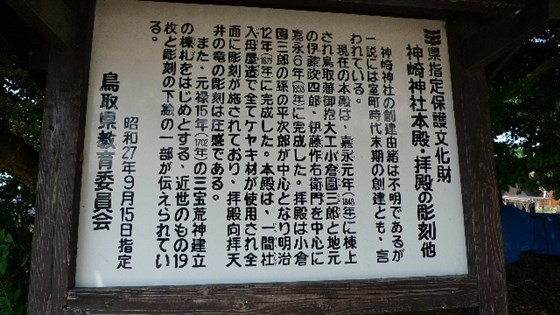 県指定保護文化財
神崎神社本殿・拝殿の彫刻他
神崎神社の創建由緒は不明であるが
一説には室町時代末期の創建とも、言
われている。
現在の本殿は、嘉永元年(1848年)に棟上
され鳥取藩御抱大工小倉園三郎と地元
の伊藤政四郎、伊藤作右衛門を中心に
嘉永6年(1853年)に完成した。拝殿は小倉
園三郎の孫の平次郎が中心となり明治
12年(1879年)に完成した。本殿は、一間社
入母屋造で全てケヤキ材が使用され全
面に彫刻が施されており、拝殿向拝天
井の竜の彫刻は圧巻である。
また、元禄15年(1702年)の三宝荒神建立
の棟札をはじめとする、近世のもの19
枚と彫刻の下絵の一部が伝えられてい
る。
昭和27年9月15日指定
鳥取県教育委員会